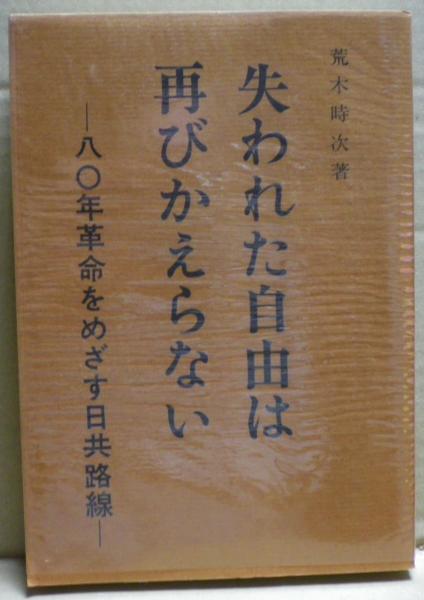 荒木時次著
失われた自由は
再びかえらない
―八〇年革命をめざす日共路線―